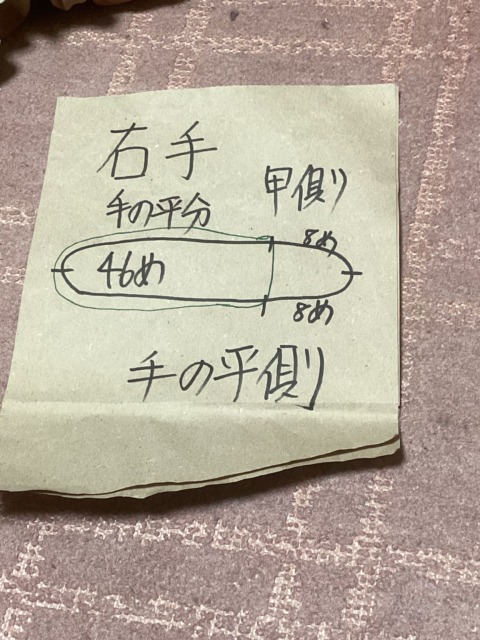 右手
甲側
手の平分
8め
46め
8め
手の平側